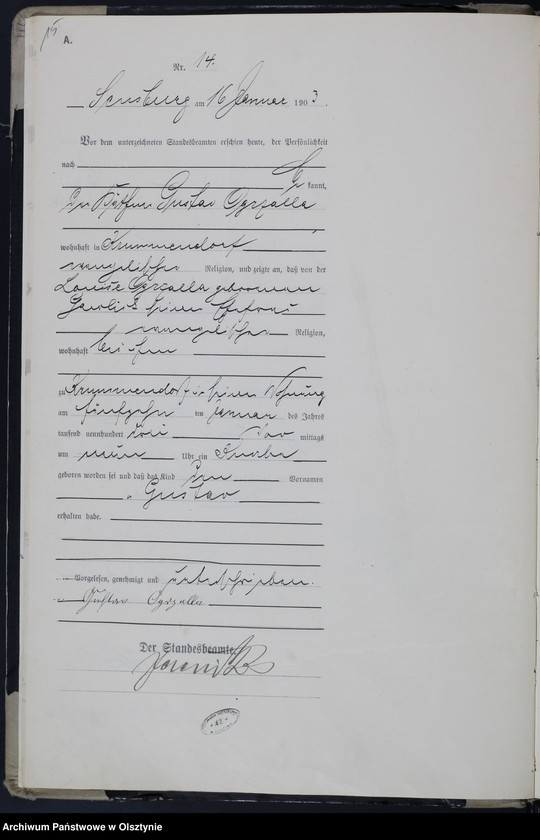 A.
Nr. 14.
Sensburg am 16 Januar 1903.
Vor dem unterzeichneten Standesbeamten erschien heute, der Persönlichkeit
nach
kannt,
Gustav Ogrzalla
wohnhaft in Krummendorf
evangelischer Religion, und zeigte an, daß von der
Louise Ogrzalla geborenen
seiner Ehefrau
evangelischer Religion,
wohnhaft bei ihm
zu Krummendorf in seiner Wohnung
am fünfzehn ten Januar des Jahres
tausend neunhundert drei Vor mittags
um neun Uhr ein Knabe
geboren worden sei und daß das Kind den Vornamen
Gustav
erhalten habe.
Vorgelesen, genehmigt und unterschrieben.
Gustav Ogrzalla
Der Standesbeamte.
Archiwum Państwowe w Olsztynie